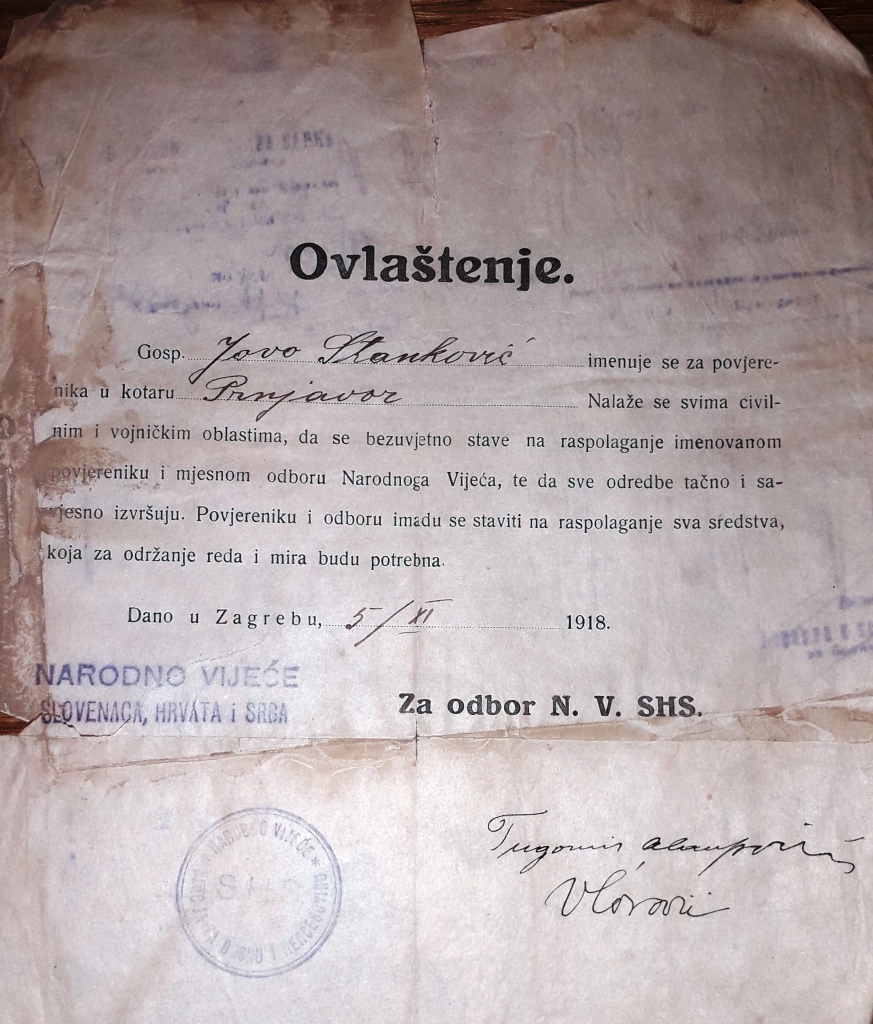 Ovlaštenje.
Gosp. Jovo Stanković imenuje se za povjere-
nika u kotaru Prnjavor Nalaže se svima civil-
nim i vojničkim oblastima, da se bezuvjetno stave na raspolaganje imenovanom
povjereniku i mjesnom odboru Narodnoga Vijeća, te da sve odredbe tačno i sa-
vjesno izvršuju. Povjereniku i odboru imadu se staviti na raspolaganje sva sredstva,
koja za održanje reda i mira budu potrebna.
Dano u Zagrebu, 5/XI 1918.
NARODNO VIJEĆE
SLOVENACA, HRVATA i SRBA
Za odbor N. V. SHS.
Tugomir Alaupović
NARODNO VIJEĆE
SHS